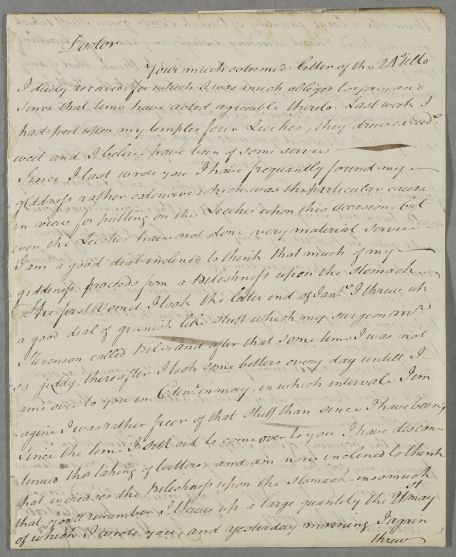 Doctor
Your much esteemed letter of the 24th Ulto
I duly received for which I was much obliged to you, and
since that time have acted agreeable thereto. Last week I
had put upon my temples four Leeches, they drew exceed
well and I believe have been of some service
Since I last wrote you I have frequently found my
giddness rather extensive which was the particular cause
in view for putting on the Leeches upon this occasion, but
even the Leeches have not done very material service
I am a good deal inclined to think that much of my
giddness proceeds from a Bileishness upon the Stomach
the first Vomit I took the latter end of Jany. I threw up
a good deal of greenish like stuff which my surgeon Mr
called Bile, and after that some time I was not
so giddy, thereafter I took some bitters every day untill I
came over to you in Edinr. in may, in which intervale I im
agine I was rather freer of that stuff than since I have been,
since the time I sett out to come over to you I have discon
tinued the taking of bitters and am now inclined to think
that increases the Bileishness upon the Stomach insomuch
that you'll remember I threw up a large quantity the may
of which I wrote you, and yesterday morning I again
threw